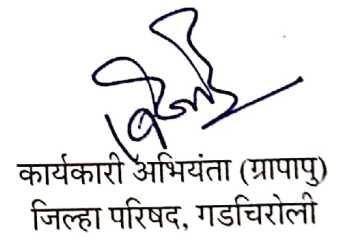 कार्यकारी अभियंता (ग्रापापु)
जिल्हा परिषद, गडचिरोली